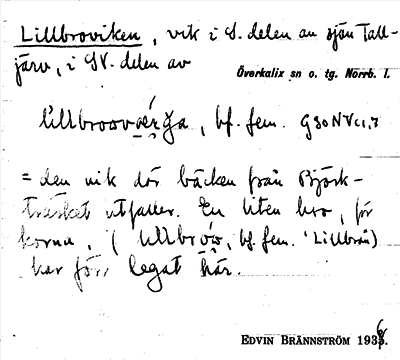 Lillbroviken, vik i S. delen av sjön Tall-
järv, i SV. delen av
Överkalix sn o. tg. Norrb. l.
bf. fem. G30NV
= den vik där bäcken från Björk-
träsket utfaller. En liten bro, för
korna, ( bf. fem. 'Lillbron')
har förr legat här.
EDVIN BRÄNNSTRÖM 1936.